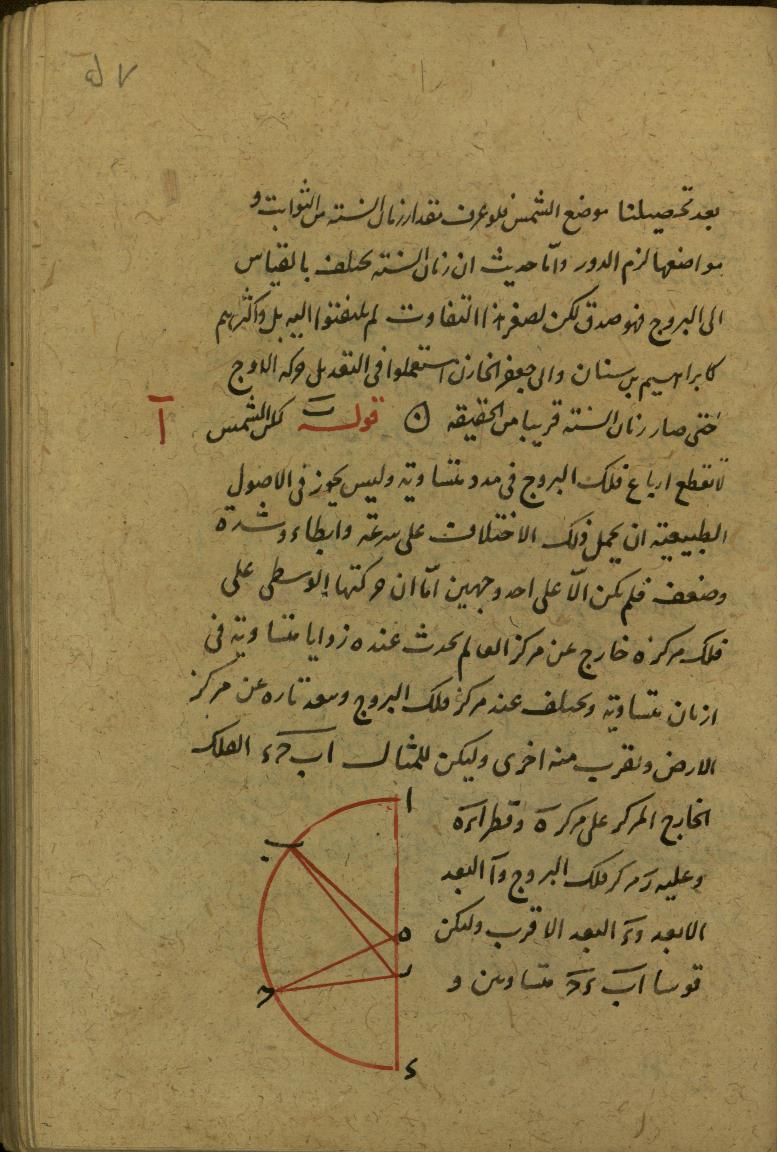 بعد تحصيلنا موضع الشمس فلو عرف مقدار زمان السنة من الثوابت و
مواضعها لزم الدور وامّا حديث ان زمان السنة يختلف بالقياس
الى البروج فهو صدق لكن لصغر هذا التفاوت لم يلتفتوا اليه بل واكثرهم
كابراهيم بن سنان وابى جعفر الخازن استعملوا فى التعديل حركة الاوج
حتى صار زمان السنة قريبا من الحقيقة ن قوله لكن الشمس
لا تقطع ارباع فلك البروج فى مدد متساوية وليس يجوز فى الاصول
الطبيعية ان يحمل ذلك الاختلاف على سرعة وابطاء وشدة
وضعف فلم يكن الّا على احد وجهين امّا ان حركتها الوسطى على
فلك مركزه خارج عن مركز العالم يحدث عنده زوايا متساوية فى
ازمان متساوية ويختلف عند مركز فلك البروج ويبعد تارة عن مركز
الارض ويقرب منه اخرى وليكن للمثال ا ب ح ء الفلك
الخارج المركز على مركز ه وقطر ا ه ء
وعليه ر مركز فلك البروج و ا البعد
الابعد و ء البعد الاقرب وليكن
قوسا ا ب ء ح متساويين و
آ
ا
ب
ه
ر
ح
ء